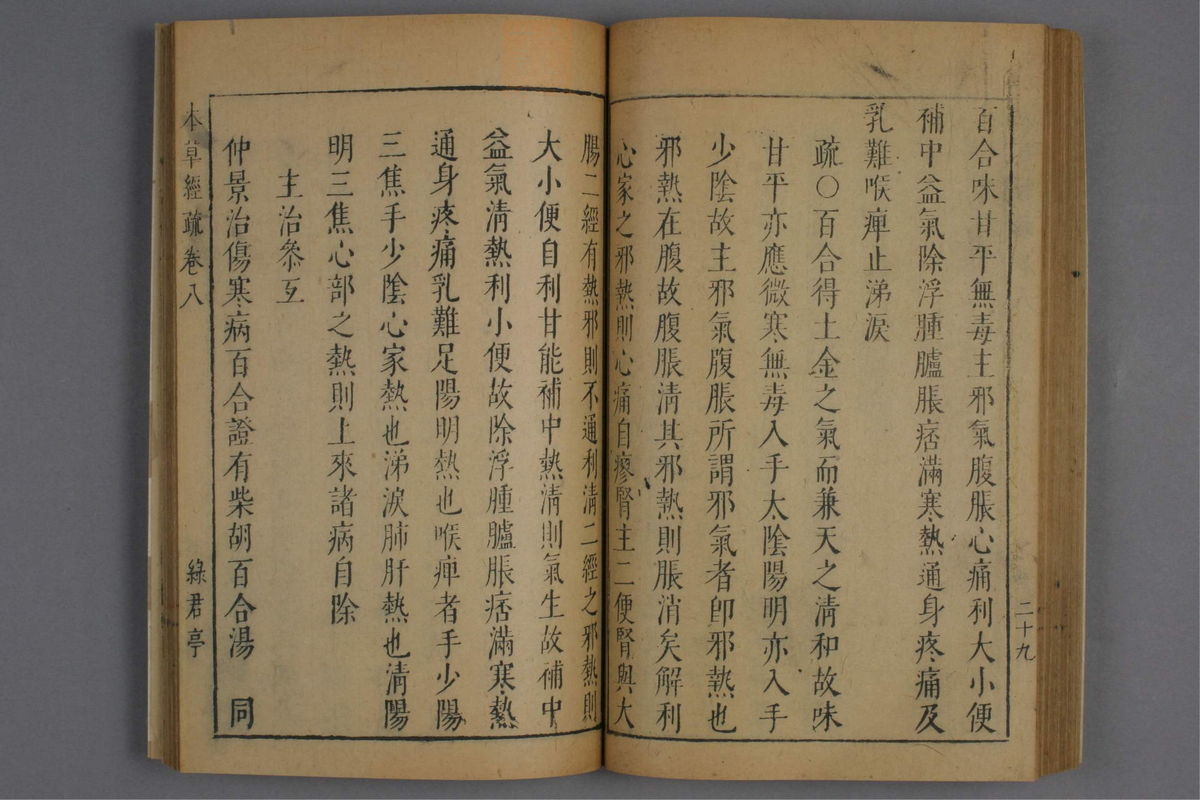 二十九
百合味甘平無毒主邪氣腹脹心痛利大小便
補中益氣除浮腫臚脹痞滿寒熱通身疼痛及
乳難喉痺止涕淚
疏○百合得土金之氣而兼天之清和故味
甘平亦應微寒無毒入手太陰陽明亦入手
少陰故主邪氣腹脹所謂邪氣者卽邪熱也
邪熱在腹故腹脹清其邪熱則脹消矣解利
心家之邪熱則心痛自瘳腎主二便腎與大
腸二經有熱邪則不通利清二經之邪熱則
大小便自利甘能補中熱清則氣生故補中
益氣清熱利小便故除浮腫臚脹痞滿寒熱
通身疼痛乳難足陽明熱也喉痺者手少陽
三焦手少陰心家熱也涕淚肺肝熱也清陽
明三焦心部之熱則上來諸病自除
主治叅互
仲景治傷寒病百合證有柴胡百合湯 同
本草經疏卷八
綠君亭